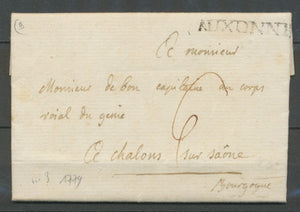 AUXONNE
A monsieur
Monsieur de bon capitaine au corps
roial du genie
A chalons sur saône
Bourgogne
3 1779